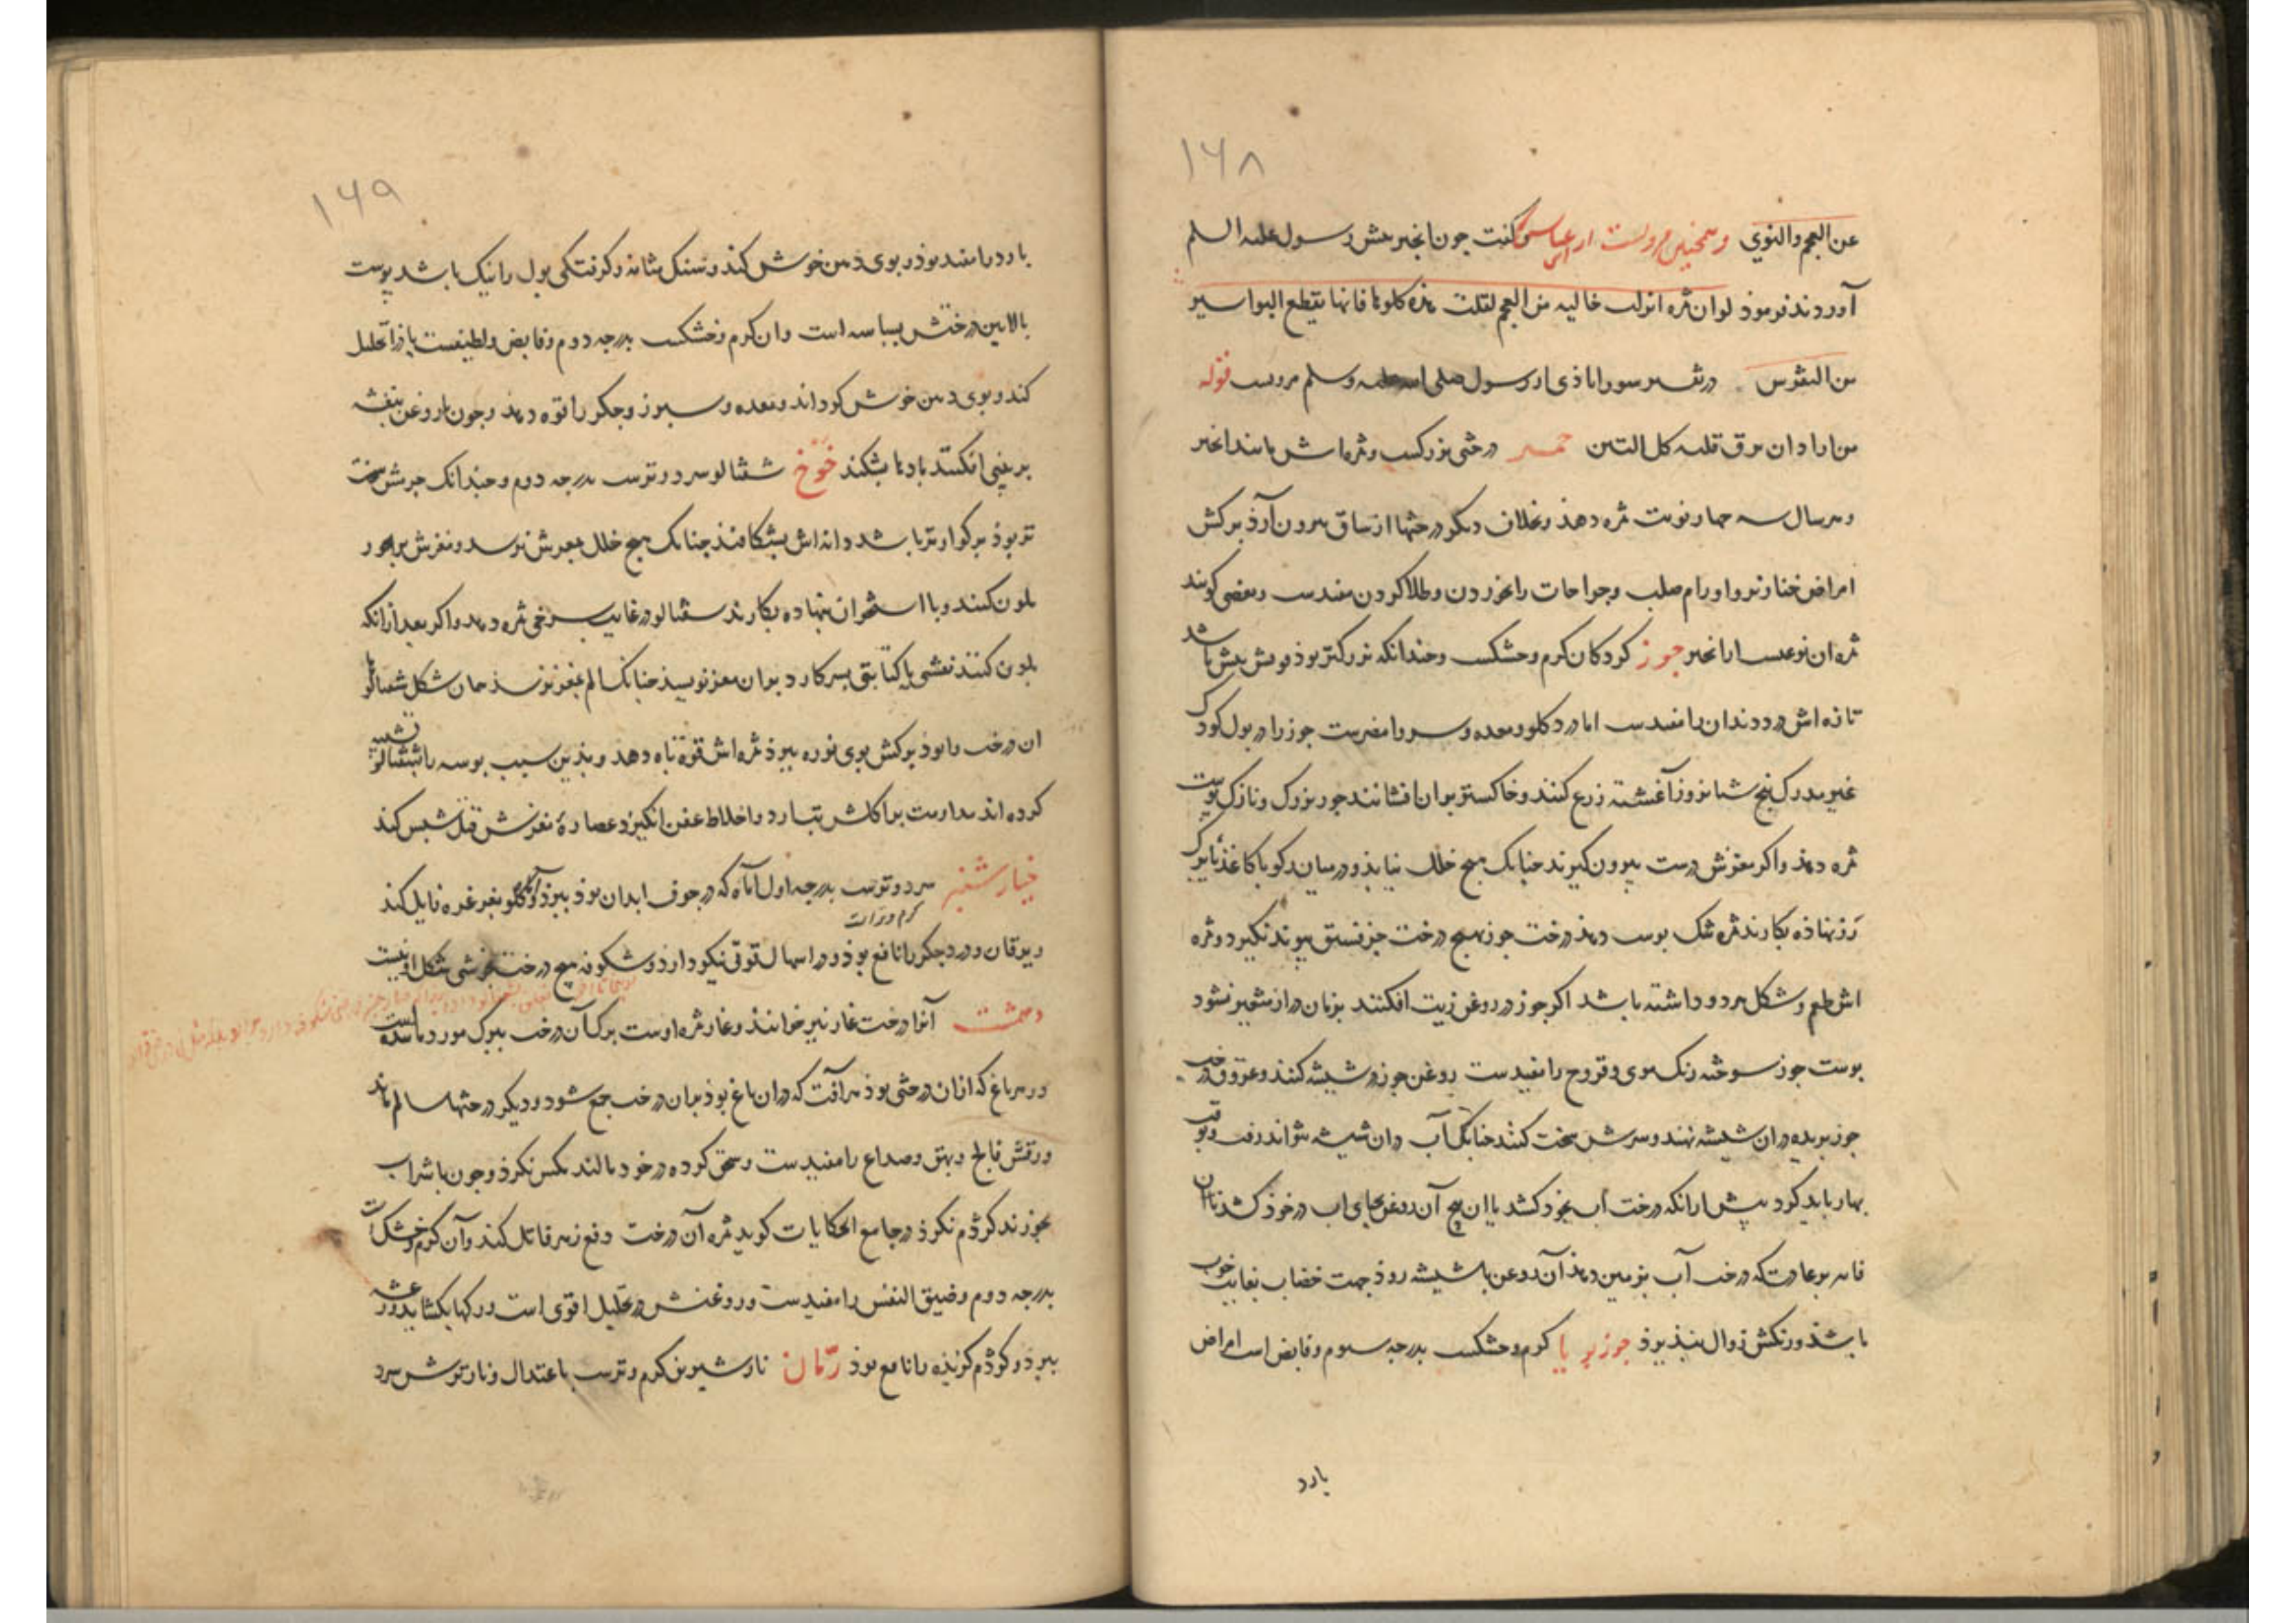 ١٦٨
عن العجم والنوي وهمچنین مرویست از ابن عباس و گفت چون انجیر پیش رسول علیه السلم
آوردند فرموذ لو ان ثمره انزلت خالیه من العجم لقلت هذه کلوها فانها یقطع البواسیر
من النقرس در تفسیر سورابادی از رسول صلی الله علیه وسلم مرویست قوله
من اراد ان یرق قلبه کل التین جمیز درختی بزرکست وثمره‌اش مانند انجیر
وهرسال سه چهار نوبت ثمره دهذ وبخلاف دیکر درختها از ساق بیرون آرذ برکش
امراض خنازیر واورام صلب وجراحات را بخوردن وطلا کردن مفیدست وبعضی کویند
ثمره ان نوعیست از انجیر جوز کردکان کرم وخشکست وچندانکه بزرکتر بوذ قوتش بیش باشد
تازه‌اش درد دندان را مفیدست اما درد کلو ومعده وسر را مضرست جوز را در بول کودک
غیر مدرک پنج شبانروز آغشته زرع کنند وخاکستر بران افشانند جوز بزرک ونازک پوست
ثمره دهذ واکر مغزش درست بیرون کیرند چنانک هیچ خلل نیابذ ودر میان کویا کاغذ یا برک
رز نهاذه بکارند ثمره تنک پوست دهذ درخت جوز بهیچ درخت جز فستق پیوند نکیرد وثمره
اش طعم وشکل هر دو داشته باشد اکر جوز در روغن زیت افکنند بزمان دراز متغیر نشود
پوست جوز سوخته رنک موی وقروح را مفیدست روغن جوز در شیشه کنند وعروق درخت
جوز بریده دران شیشه نهند وسرش سخت کنند چنانک آب دران شیشه نتواند رفت وبوقت
بهار باید کرد پیش ازانکه درخت آب بخود کشد یا ان بیخ آن روغن بجای اب در خوذ کشد تا ان
قاعده بر عادت که درخت آب بزمین دهذ آن روغن با شیشه روذ جهت خضاب بغایت خوب
باشذ ورنکش زوال نپذیرد جوز بویا کرم وخشکست بدرجه سیوم وقابض است امراض
بارد
١٦٩
بارد را مفید بوذ وبوی دهن خوش کند وسنک مثانه وکرفتکی بول را نیک باشد پوست
بالایین درختش بسباسه است وان کرم وخشکست بدرجه دوم وقابض ولطیفست باذ را تحلیل
کند وبوی دهن خوش کرداند ومعده وسپرز وجکر را قوه دهذ وچون با روغن بنفشه
بر بینی افکنند بادها بشکند خوخ شفتالو سرد وترست بدرجه دوم وچندانک جرمش سخت
تر بوذ بر کوارتر باشد دانه‌اش بشکافند چنانک هیچ خلل بمغزش نرسد ومغزش بزنجور
ملون کنند وبا استخوان نهاده بکارند شفتالو در غایت سرخی ثمره دهد واکر بعد ازانکه
ملون کنند نقشی یا کتابتی بسر کارد بران مغز نویسند چنانک الم بمغز نرسذ همان شکل شفتالو
ان درخت را بوذ برکش بوی نوره ببرد ثمره‌اش قوة باه دهد وبذین سبب بوسه را بشفتالو تشبیه
کرده‌اند مداومت بر اکلش تب آرد واخلاط عفن انکیزد عصاره مغزش قتل شپش کند
خیار شنبر سرد وترست بدرجه اول اماه که در جوف ابدان بوذ ببرد وآماس کلو بغرغره زایل کند
کرم وتر است
ویرقان ودرد جکر را نافع بوذ ودر اسهال قوتی نیکو دارذ وشکوفه هیچ درخت بخوشی شکل او نیست
دهمشت آنرا درخت غار نیز خوانند وغار ثمره اوست برک آن درخت ببرک مورد مانند است
ودر هر باغ که ازان درختی بوذ هر آفت که دران باغ بوذ بان درخت جمع شود ودیکر درختها سالم ماند
ورقش فالج وبهق وصداع را مفیدست وسحق کرده در خود مالند مکس نکرذ وچون با شراب
بخورند کژدم نکرذ در جامع الحکایات کوید ثمره آن درخت دفع زهر قاتل کند وآن کرم وخشک است
بدرجه دوم وضیق النفس را مفیدست وروغنش در تحلیل اقوی است ورکها بکشاید ورعشه
ببرد وکژدم کزیده را نافع بوذ رمان نار شیرین کرم وترست باعتدال ونار ترش سرد